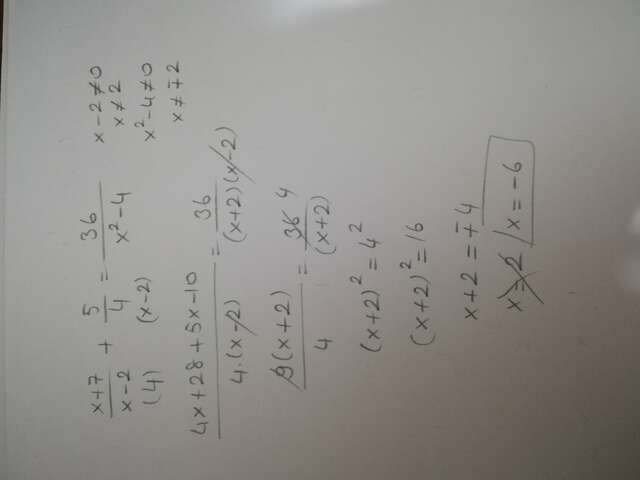 (x+7)/(x-2) + 5/4 = 36/(x²-4)   x-2≠0
(4)   (x-2)   x≠2
x²-4≠0
x≠∓2
(4x+28+5x-10)/(4.(x-2)) = 36/((x+2)(x-2))
9(x+2)/4 = 36 4/(x+2)
(x+2)² = 4²
(x+2)² = 16
x+2 = ∓4
x=2 / x=-6